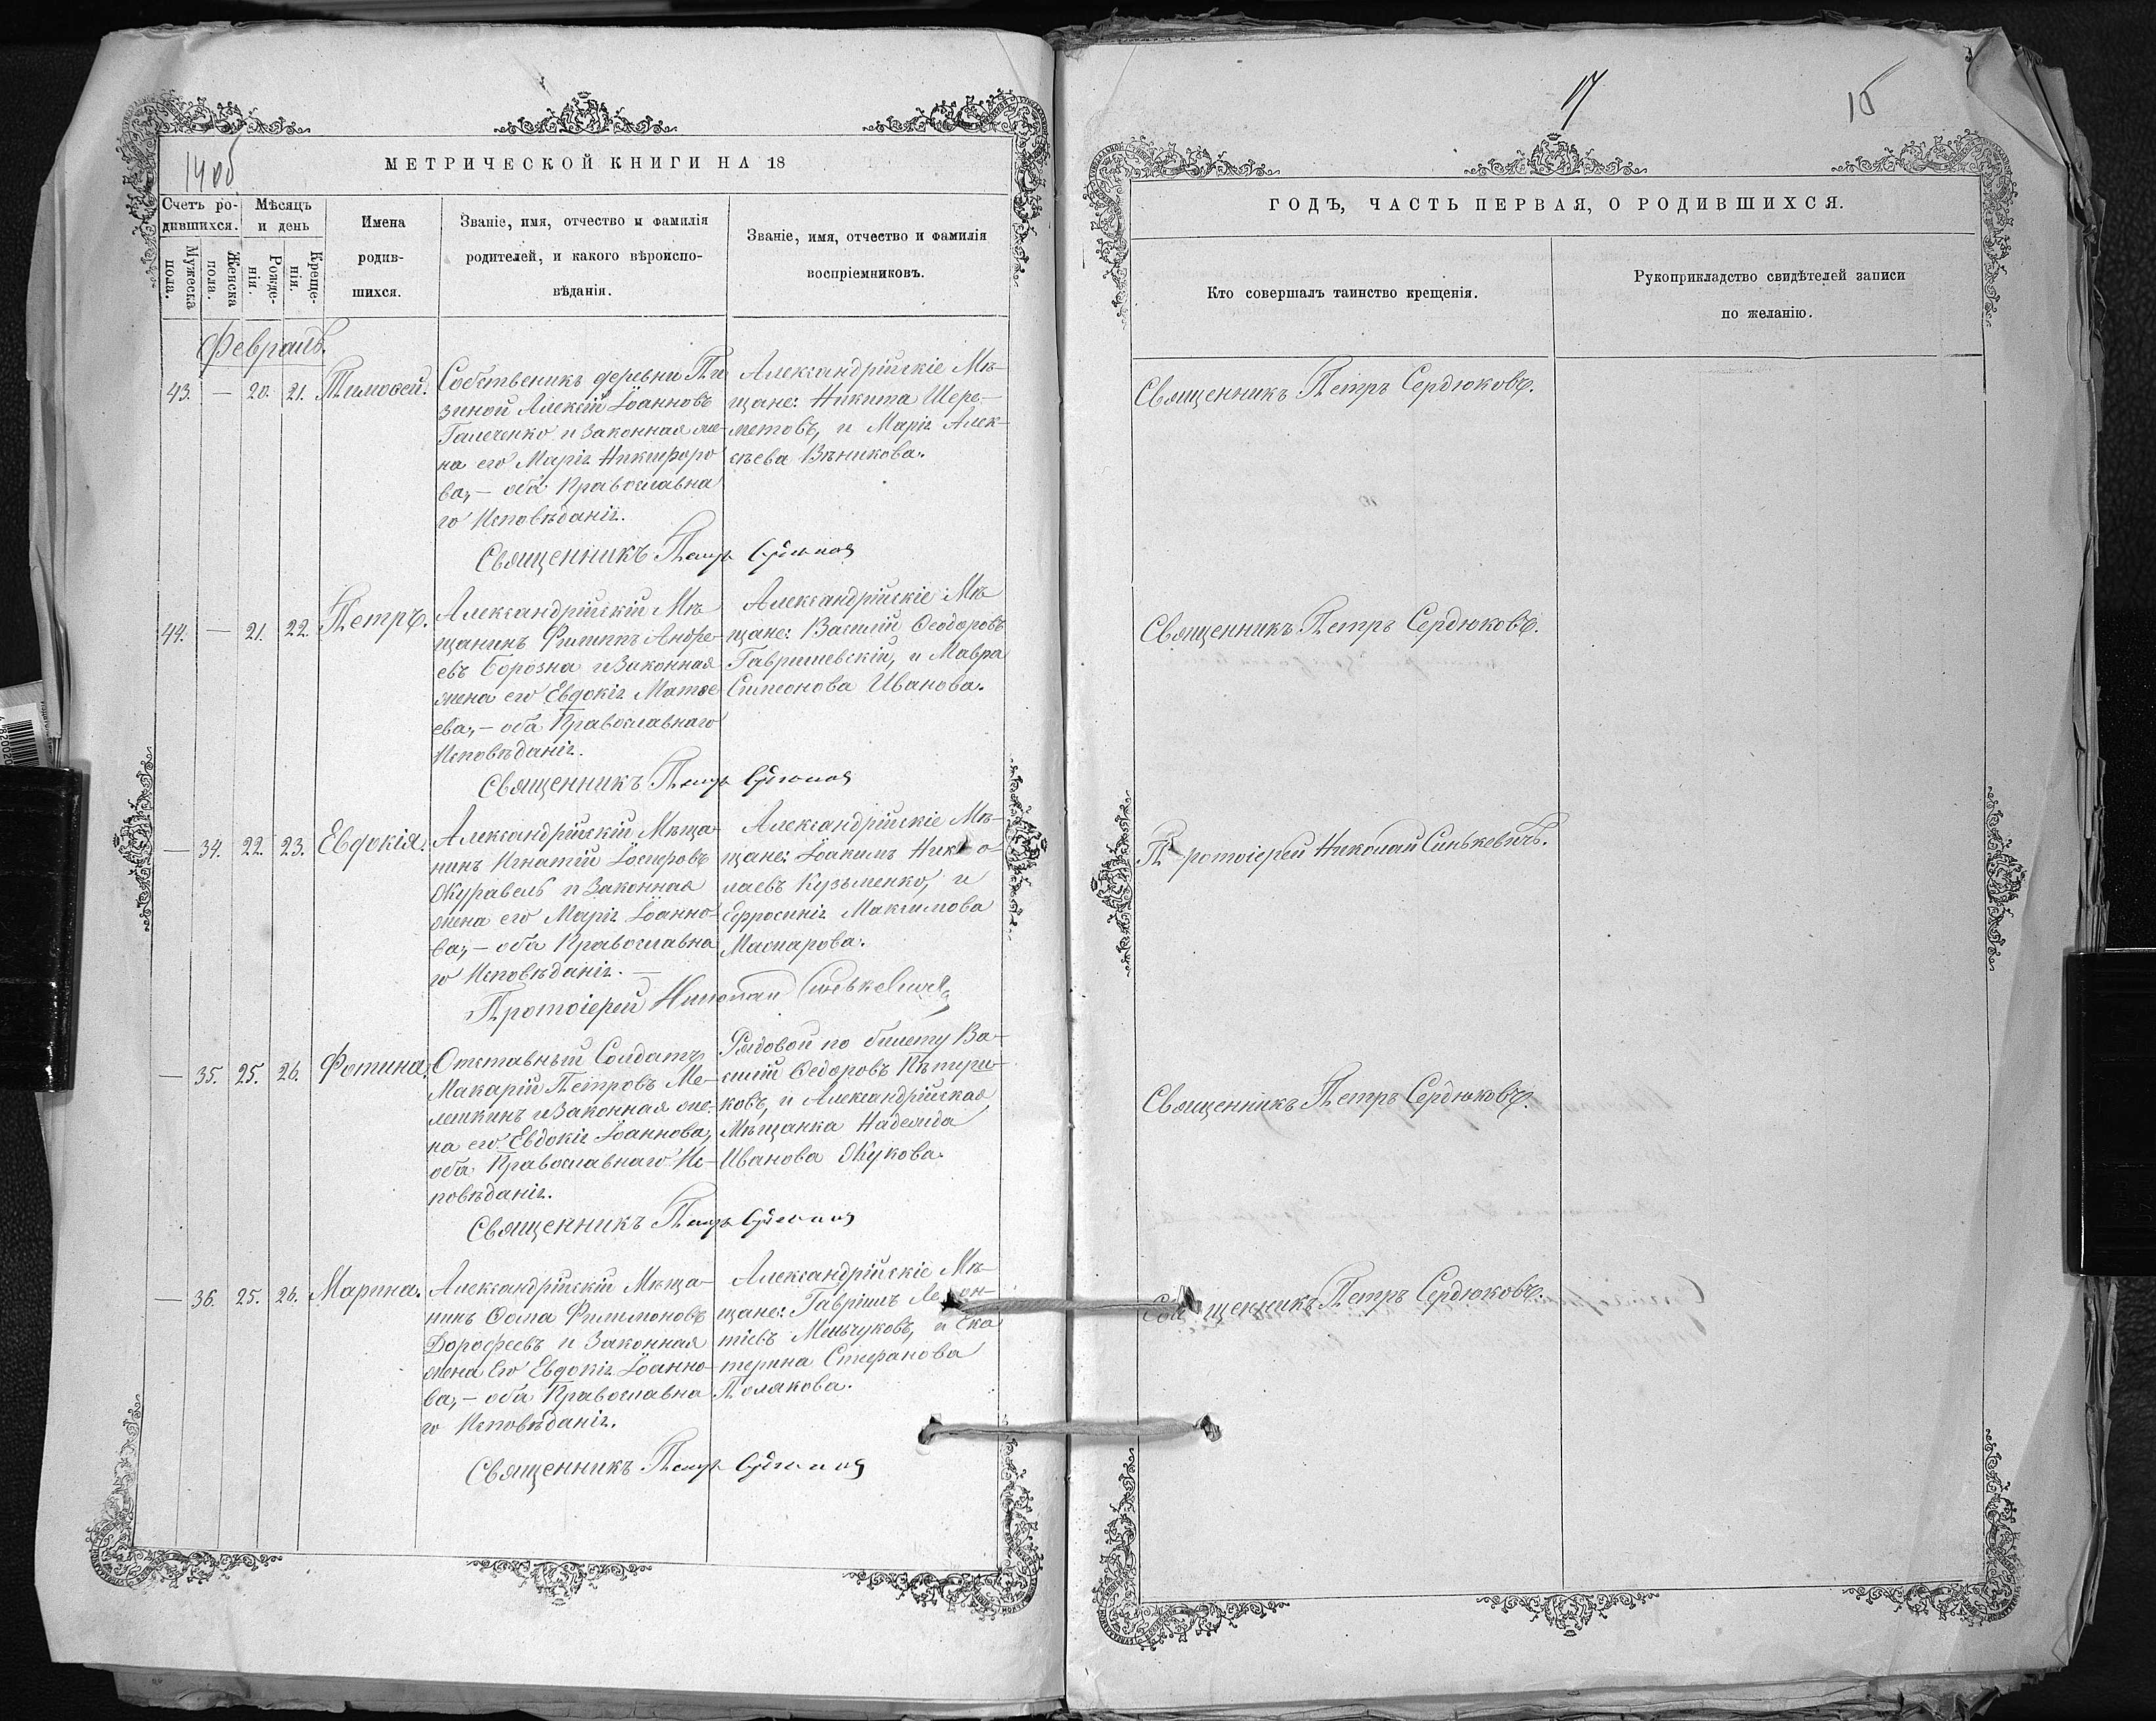 14об
МЕТРИЧЕСКОЙ КНИГИ НА 18
Счетъ ро-
дившихся.
Мѣсяцъ
и день
Мужеска
пола.
Женска
пола.
Рожде-
нія.
Креще-
нія.
Имена
родив-
шихся.
Званіе, имя, отчество и фамилія
родителей, и какого вѣроиспо-
вѣданія.
Званіе, имя, отчество и фамилія
воспріемниковъ.
Февраль.
43. — 20. 21. Тимоѳей.
Собственикъ деревни Пи
зиной Алексій Іоанновъ
Галеченко и законная же-
на его Марія Никифоро
ва, — оба Православна
го Исповѣданія.
Александрійскіе Мѣ-
щане: Никита Шере-
метовъ, и Марія Алек-
сѣева Вѣникова.
Священникъ Петръ
44. — 21. 22. Петръ.
Александрійскій Мѣ
щанинъ Филиппъ Андре-
евъ Борозна и законная
жена его Евдокія Матѳе
ева, — оба Православнаго
Исповѣданія.
Александрійскіе Мѣ
щане: Василій Ѳеодоровъ
Гавришевскій, и Мавра
Симеонова Иванова.
Священникъ Петръ
— 34. 22. 23. Евдокія.
Александрійскій Мѣща-
нинъ Игнатій Іосифовъ
Журавель и законная
жена его Марія Іоанно-
ва, — оба Православна
го Исповѣданія. —
Александрійскіе Мѣ-
щане: Іоакимъ Нико-
лаевъ Кузьменко, и
Ефросинія Максимова
Протоіерей Николай Синькевичъ
— 35. 25. 26. Фотина.
Отставный Солдатъ
Макарій Петровъ Ме-
лешкинъ и законная же-
на его Евдокія Іоаннова,
оба Православнаго Ис-
повѣданія.
Рядовой по билету Ва-
силій Ѳедоровъ
ковъ, и Александрійская
Мѣщанка Надежда
Иванова Жукова.
Священникъ Петръ
— 36. 25. 26. Марина.
Александрійскій Мѣща-
нинъ Ѳома Филимоновъ
Дорофеевъ и законная
жена Его Евдокія Іоанно-
ва, — оба Православна
го Исповѣданія.
Александрійскіе Мѣ-
щане: Гавріилъ Леон-
тіевъ Меньчуковъ, и Ека
терина Стефанова
Полякова.
Священникъ Петръ
15
ГОДЪ, ЧАСТЬ ПЕРВАЯ, О РОДИВШИХСЯ.
Кто совершалъ таинство крещенія.
Рукоприкладство свидѣтелей записи
по желанію.
Священникъ Петръ Сердюковъ.
Священникъ Петръ Сердюковъ.
Протоіерей Николай Синькевичъ.
Священникъ Петръ Сердюковъ.
Священникъ Петръ Сердюковъ.